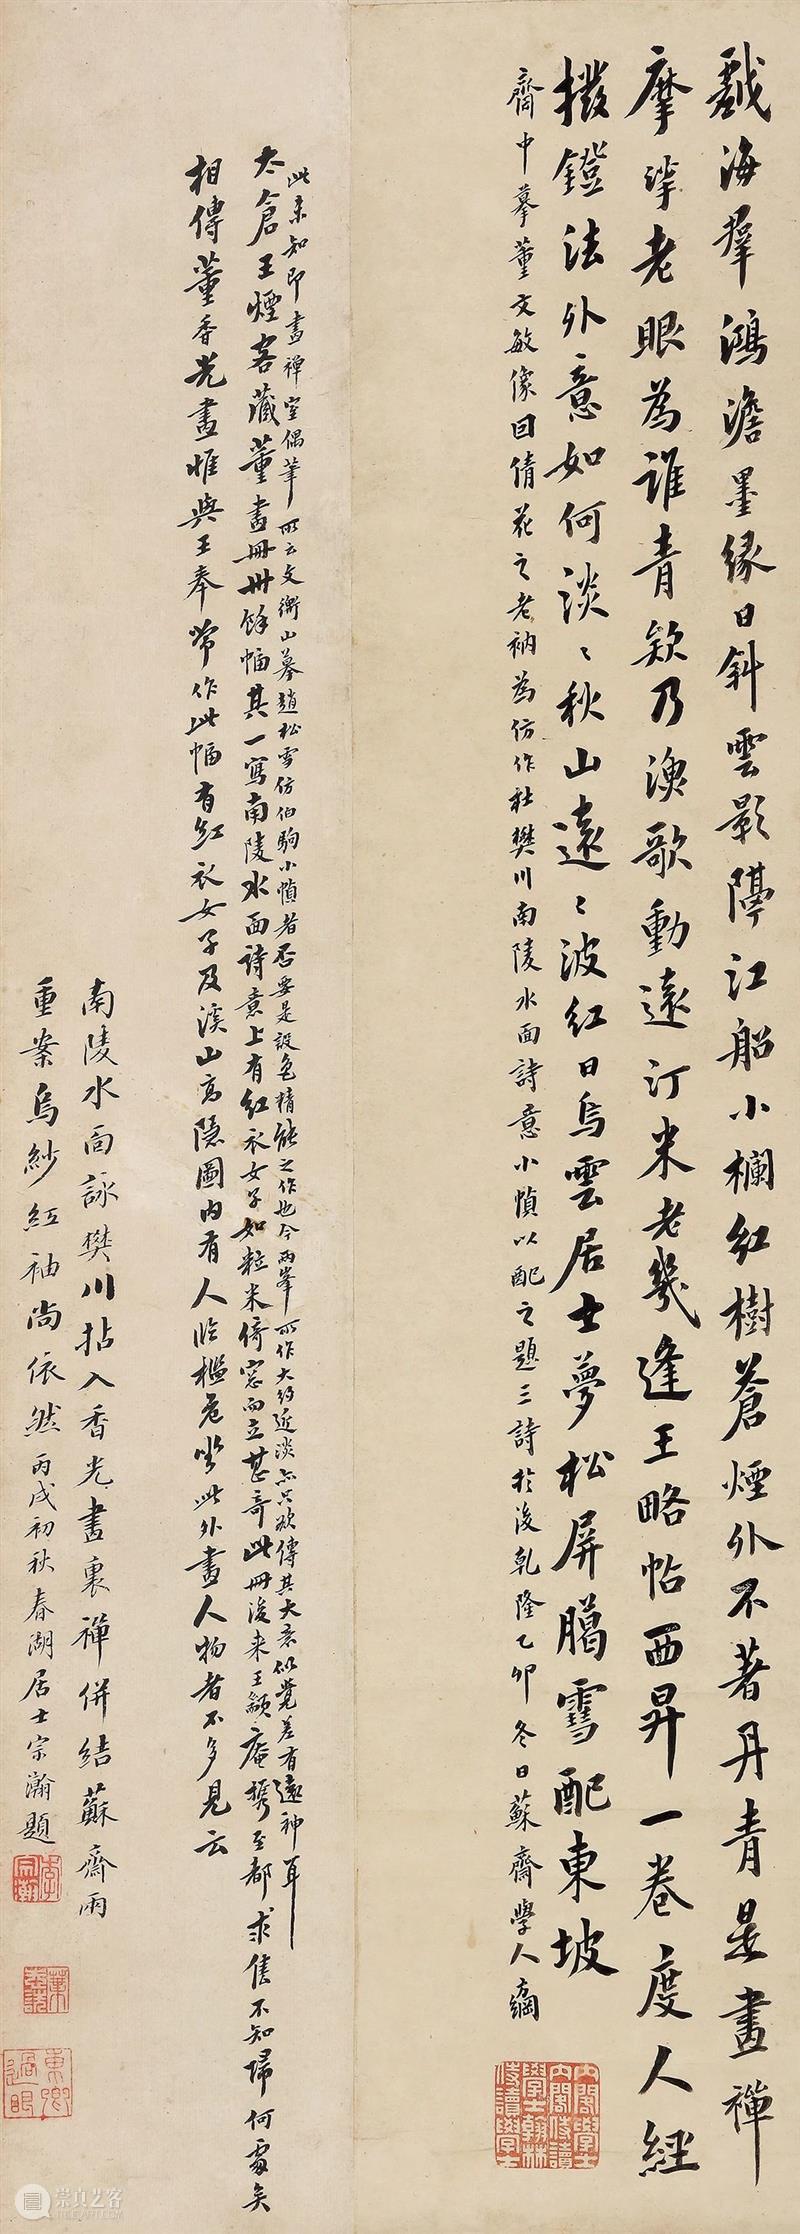 戲海羣鴻澹墨緣日斜雲影隔江船小欄紅樹蒼煙外不著丹青是畫禪
摩挲老眼為誰青欸乃漁歌動遠汀米老幾逢王略帖西昇一卷度人經
撥鐙法外意如何淡〻秋山遠〻波紅日烏雲居士夢松屏臈雪配東坡
齋中摹董文敏像因倩花之老衲為仿作杜樊川南陵水面詩意小幀以配之題三詩於後乾隆乙卯冬日蘇齋學人方綱
內閣學士內閣侍讀學士翰林侍讀學士
此未知即畫禪室偶筆所云文衡山摹趙松雪仿伯駒小幀者否要是設色精能之作也今兩峯所作大約近淡亦只欲傳其大意似覺差有遠神耳
太倉王煙客藏董畫冊卅餘幅其一寫南陵水面詩意上有紅衣女子如粒米倚窓而立甚奇此冊後來王庵攜至都求售不知歸何處矣
相傳董香光畫惟與王奉常作此幅有紅衣女子及溪山高隱圖內有人臨檻危坐此外畫人物者不多見云
南陵水面詠樊川拈入香光畫裏禪併結蘇齋兩
重案烏紗紅袖尚依然丙戌初秋春湖居士宗瀚題
李宗瀚
葉志詵
東卿過眼
崇真艺客